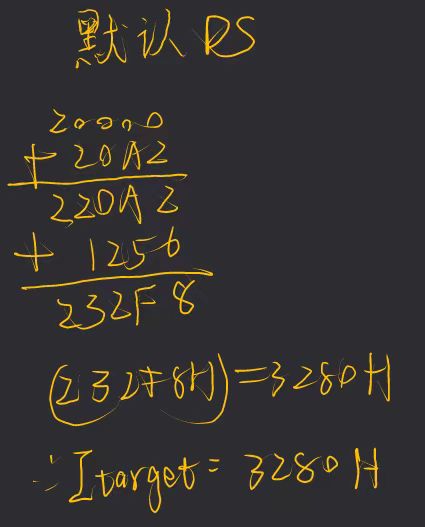 默认 DS
20000
+ 20A2
220A2
+ 1256
232F8
(232F8H)=3280H
∴Itarget= 3280H